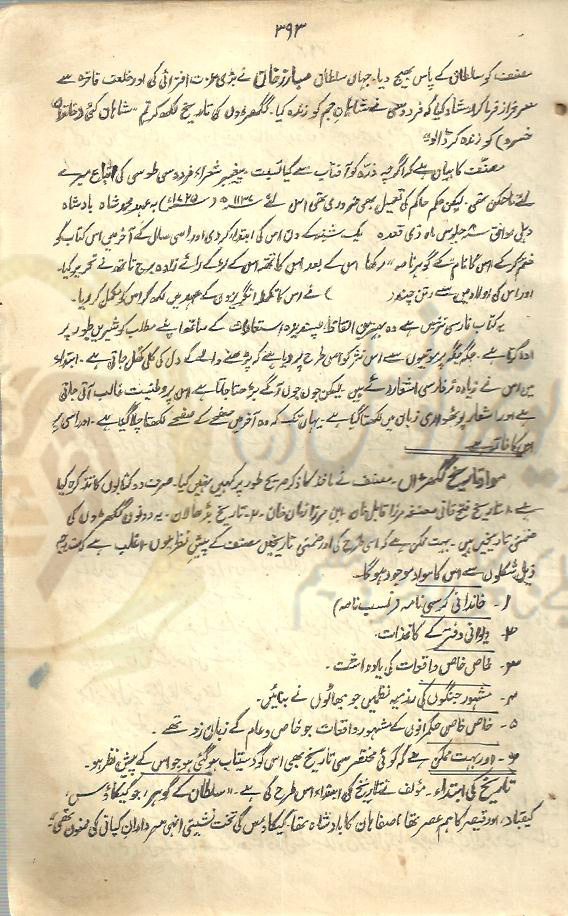 ۳۹۳
مصنف کو سلطان کے پاس بھیج دیا۔ جہاں سلطان مبارز خان نے بڑی عزت افزائی کی اور خلعت فاخرہ سے
سرفراز فرما کر ارشاد کیا کہ فردوسی نے شاہان عجم کو زندہ کیا۔ گکھڑوں کی تاریخ لکھ کر تم "شاہان کئی
خسرو) کو زندہ کر ڈالو"
مصنف کا بیان ہے کہ اگرچہ ذرّہ کو آفتاب سے کیا نسبت۔ پیغمبر شعراء فردوسی طوسی کی اتباع میرے
لئے ناممکن تھی۔ لیکن حکم حاکم کی تعمیل بھی ضروری تھی اس لئے ۱۱۳۷ھ (۱۷۲۵ء) بعہد محمد شاہ بادشاہ
دہلی موافق ۸ جلوس ماہ ذی قعدہ یک شنبہ کے دن اس کی ابتدا کر دی اور اسی سال کے آخر میں اس کتاب کو
ختم کر کے اس کا نام "کے گوہر نامہ" رکھا اس کے بعد اس کا تتمہ اس کے لڑکے رائے زادہ برج ناتھ نے تحریر کیا۔
اور اس کی اولاد میں سے رتن چند ( ) نے اس کا تکملہ انگریزوں کے عہد میں لکھ کر اس کو مکمل کر دیا۔
یہ کتاب فارسی نثر میں ہے وہ بہترین الفاظ پسندیدہ استعارات کے ساتھ اپنے مطلب کو شیریں طور پر
ادا کیا ہے۔ جگہ جگہ پر موتیوں سے اس نثر کو اس طرح پرویا ہے کہ پڑھنے والے کے دل کی کلی کھل جاتی ہے۔ ابتداء
میں اس نے زیادہ تر فارسی اشعار دئے ہیں لیکن جوں جوں آگے بڑھتا جاتا ہے اس پر وطنیت غالب آتی جاتی
ہے اور اشعار پوٹھواری زبان میں لکھتا گیا ہے۔ یہاں تک کہ وہ آخر میں صفحے کے صفحے لکھتا چلا گیا ہے۔ اور اسی پر
اس کا ناز ہے
مواد تاریخ گکھڑاں۔ مصنف نے ماخذ کا ذکر صریح طور پر کہیں نہیں کیا۔ صرف دو کتابوں کا تذکرہ کیا
ہے۔ ۱۔ تاریخ فتح خانی مصنفہ مرزا قابل خان ابن مرزا زمان خان۔ ۲۔ تاریخ بڑھالاں۔ یہ دونوں گکھڑوں کی
ضمنی تاریخیں ہیں۔ بہت ممکن ہے کہ اسی طرح کی اور ضمنی تاریخیں مصنف کے پیش نظر ہوں۔ اغلب ہے کہ مندرجہ
ذیل شکلوں سے اس کا مواد موجود ہوگا۔
۱۔ خاندانی کرسی نامہ (نسب نامہ)
۲۔ دیوانی دفتر کے کاغذات۔
۳۔ خاص خاص واقعات کی یادداشت۔
۴۔ مشہور جنگوں کی رزمیہ نظمیں جو بھاٹوں نے بنائیں۔
۵۔ خاص خاص حکمرانوں کے مشہور واقعات جو خاص و عام کے زبان زد تھے۔
۶۔ اور بہت ممکن ہے کہ کوئی مختصر سی تاریخ بھی اس کو دستیاب ہو گئی ہو جو اس کے پیش نظر ہو۔
تاریخ کی ابتداء۔ مؤلف نے تاریخ کی ابتداء اس طرح کی ہے۔ "سلطان کے گوہر، جو کیکاؤس،
کیقباد، اور قیصر کا ہم عصر تھا اصفاہان کا بادشاہ تھا۔ کیکاؤس کی تخت نشینی انہی سرداران کیانی کی ممنون تھی۔